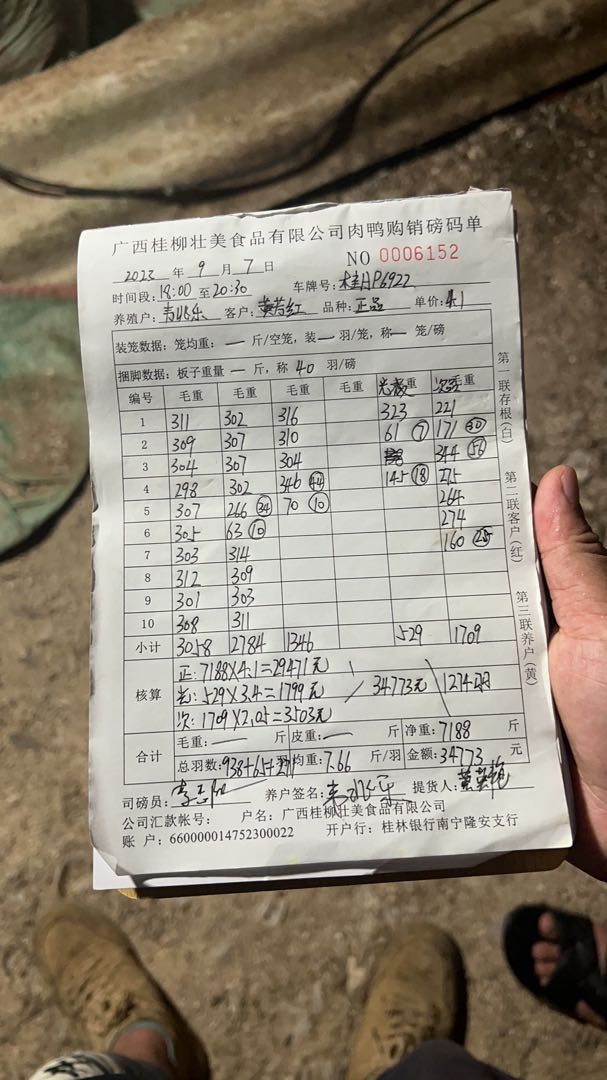 广西桂柳壮美食品有限公司肉鸭购销磅码单
NO 0006152
2023 年 9 月 7 日
时间段: 18:00 至 20:30 车牌号:
养殖户: 客户: 黄若红 品种: 正品 单价: 4.1
装笼数据: 笼均重: — 斤/空笼, 装 — 羽/笼, 称 — 笼/磅
捆脚数据: 板子重量 — 斤, 称 40 羽/磅
编号 毛重 毛重 毛重 毛重 重 次 毛重
1 311 302 316 323 221
2 309 307 310 61 ⑦ 171 ㉚
3 304 307 304 344 56
4 298 302 346 44 145 ⑱
5 307 266 34 70 ⑩ 264
6 305 63 ⑩ 274
7 303 314 160
8 312 309
9 301 303
10 308 311
小计 3058 2784 1346 529 1709
核算
正: 7188×4.1=29471元
光: 529×3.4=1799元 / 34773元
次: 1709×2.05=3503元
合计
毛重: — 斤 皮重: — 斤 净重: 7188 斤
总羽数: 938+65+271 均重: 7.66 斤/羽 金额: 34773 元
司磅员: 养户签名: 提货人:
公司汇款帐号: 户名: 广西桂柳壮美食品有限公司
账 户: 660000014752300022 开户行: 桂林银行南宁隆安支行
第一联存根(白) 第二联客户(红) 第三联养户(黄)